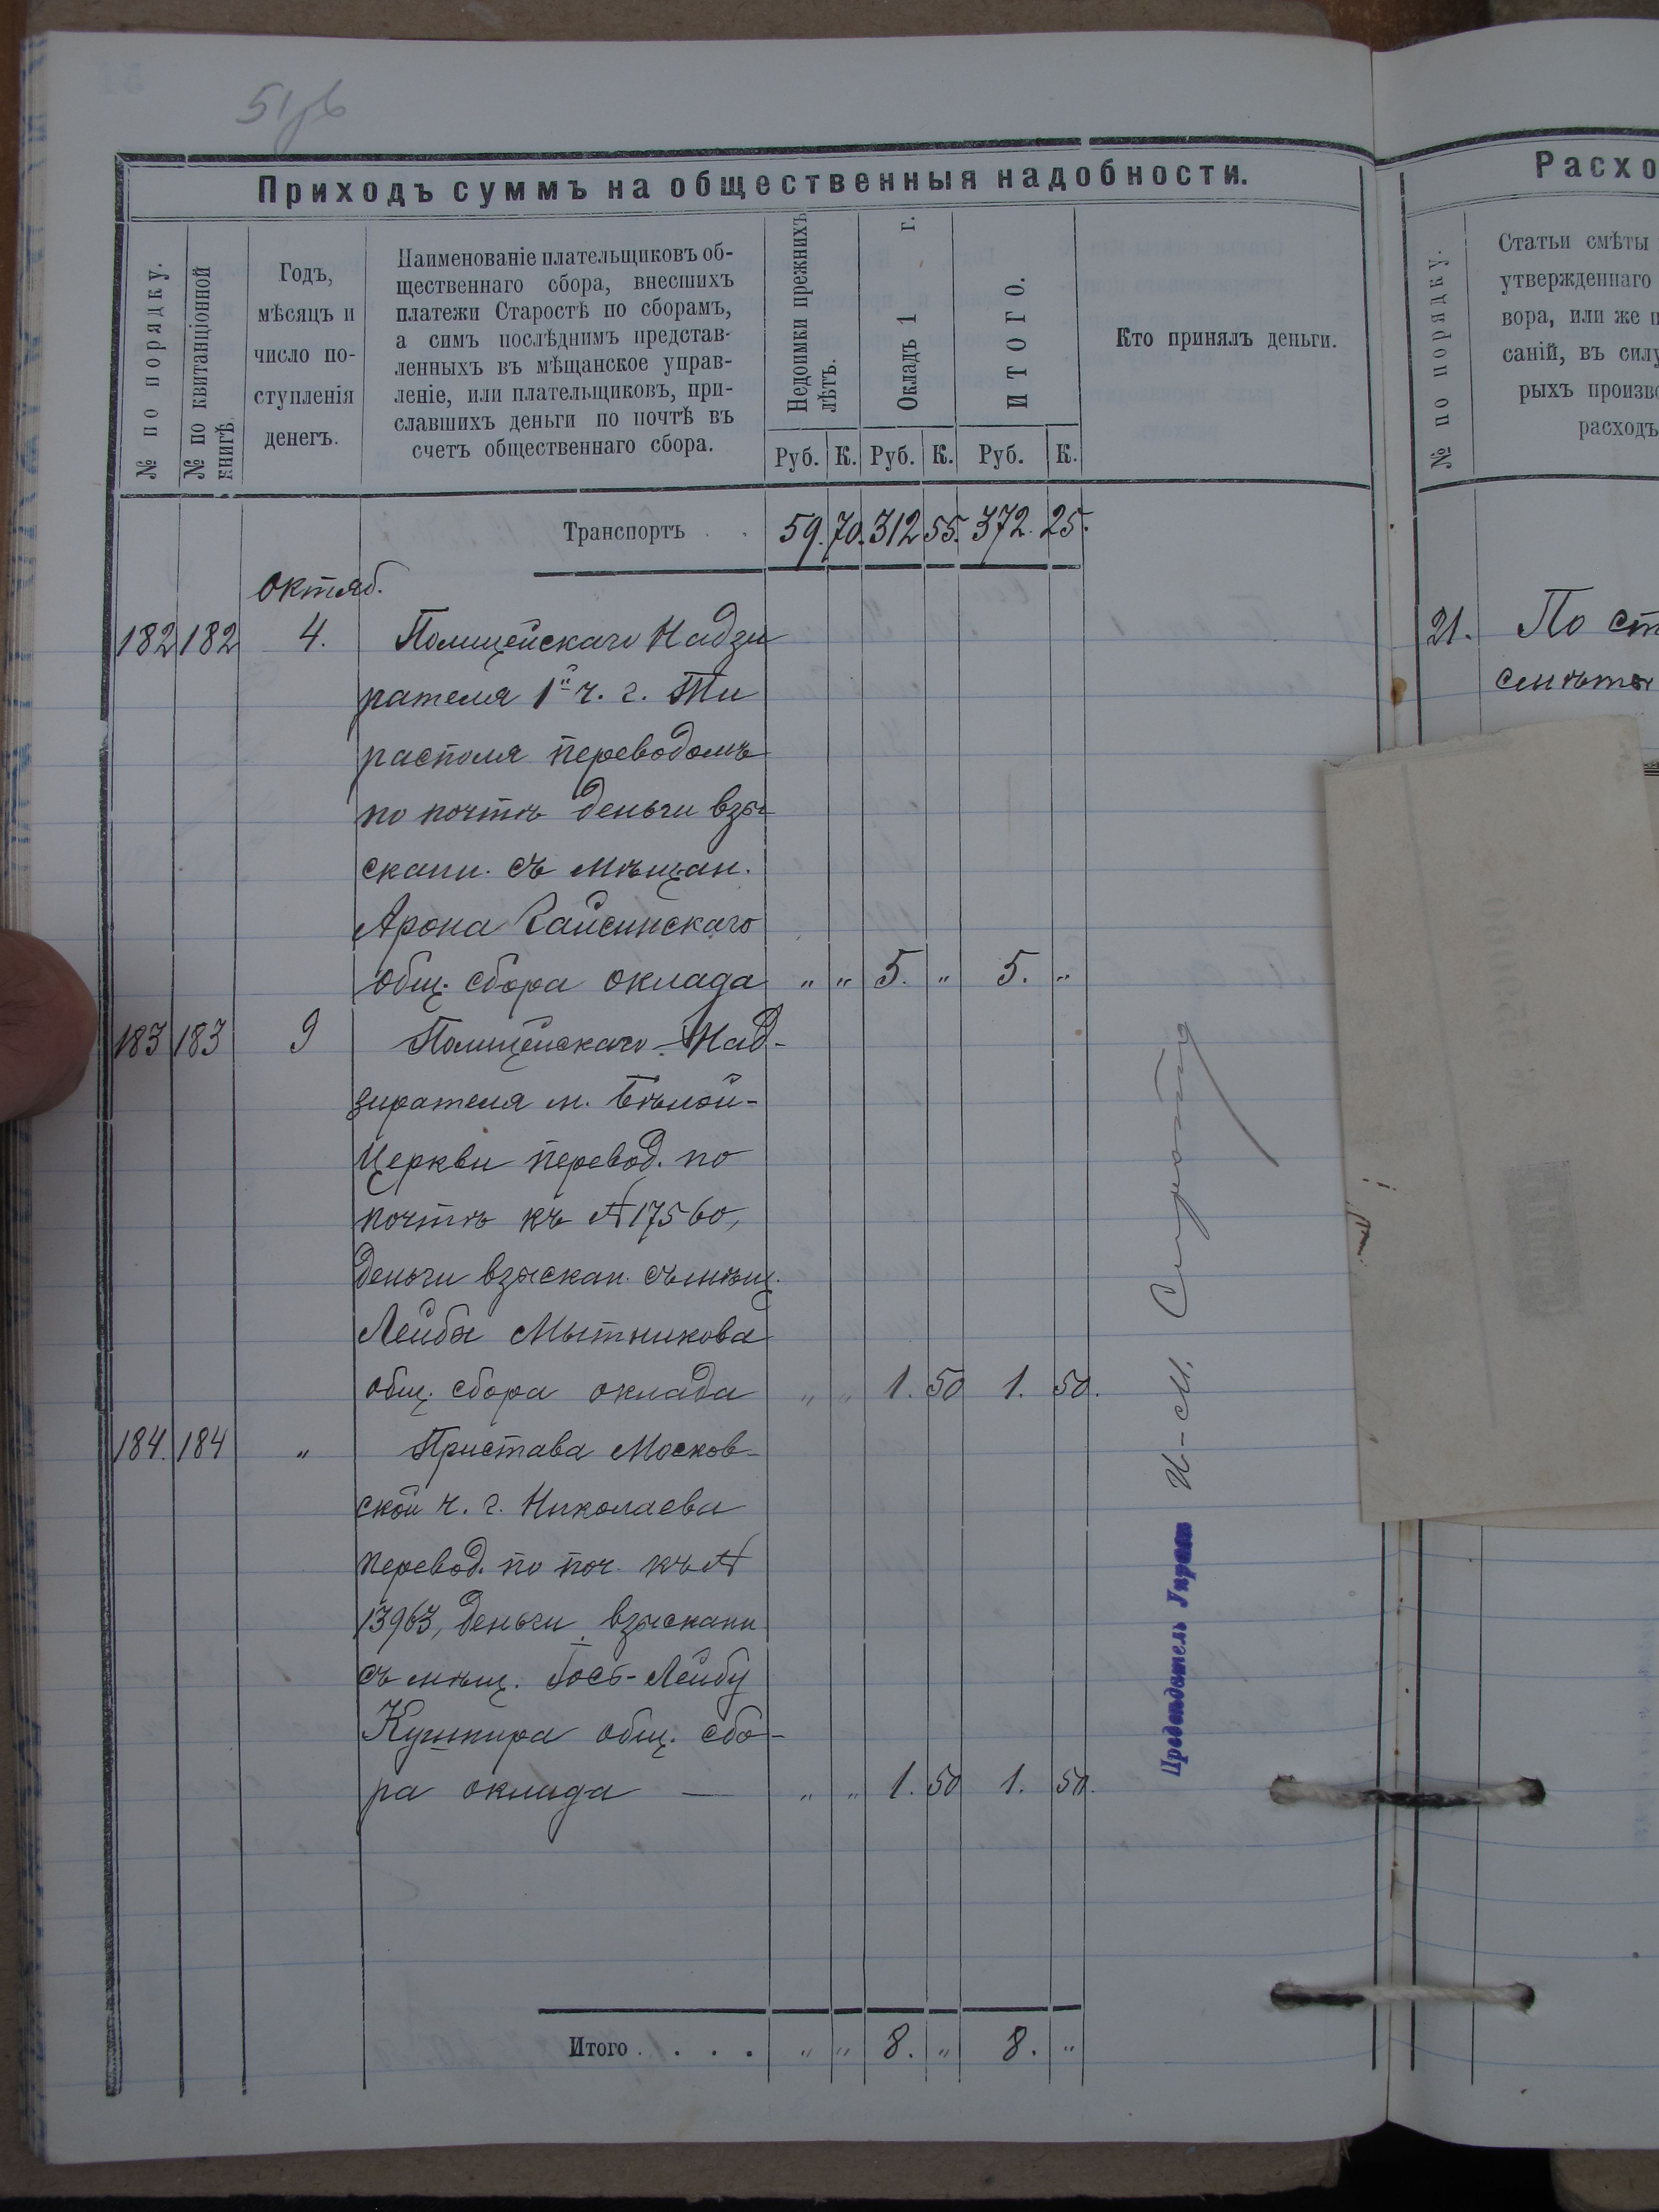 51об
Приходъ суммъ на общественныя надобности.
№ по порядку.
№ по квитанціонной
книгѣ.
Годъ,
мѣсяцъ и
число по-
ступленія
денегъ.
Наименованіе плательщиковъ об-
щественнаго сбора, внесшихъ
платежи Старостѣ по сборамъ,
а симъ послѣднимъ представ-
ленныхъ въ мѣщанское управ-
леніе, или плательщиковъ, при-
славшихъ деньги по почтѣ въ
счетъ общественнаго сбора.
Недоимки прежнихъ
лѣтъ.
Окладъ 1 г.
ИТОГО.
Руб. К. Руб. К. Руб. К.
Кто принялъ деньги.
Транспортъ . . 59. 70. 312 55. 372. 25.
Октяб.
182 182 4. Полицейскаго Надзи
рателя 1й ч. г. Ти
располя переводомъ
по почтѣ деньги взы
скани. съ мѣщан.
Арона Гайсинскаго
общ. сбора оклада „ „ 5. „ 5. „
183 183 9 Полицейскаго Над-
зирателя м. Бѣлой-
Церкви перевод. по
почтѣ къ № 17560,
деньги взыскан. съ мѣщ.
Лейбы Мытникова
общ. сбора оклада „ „ 1. 50 1. 50.
184. 184 „ Пристава Москов-
ской ч. г. Николаева
перевод. по поч. къ №
13963, деньги взыскани
съ мѣщ. Іось-Лейбу
Кушнира общ. сбо-
ра оклада — „ „ 1. 50 1. 50.
Итого . . . . „ „ 8. „ 8. „
Предсѣдатель Управы И-М.
Расхо
№ по порядку.
Статьи смѣты
утвержденнаго
вора, или же п
саній, въ силу
рыхъ произво
расходъ
21. По ст
смѣты